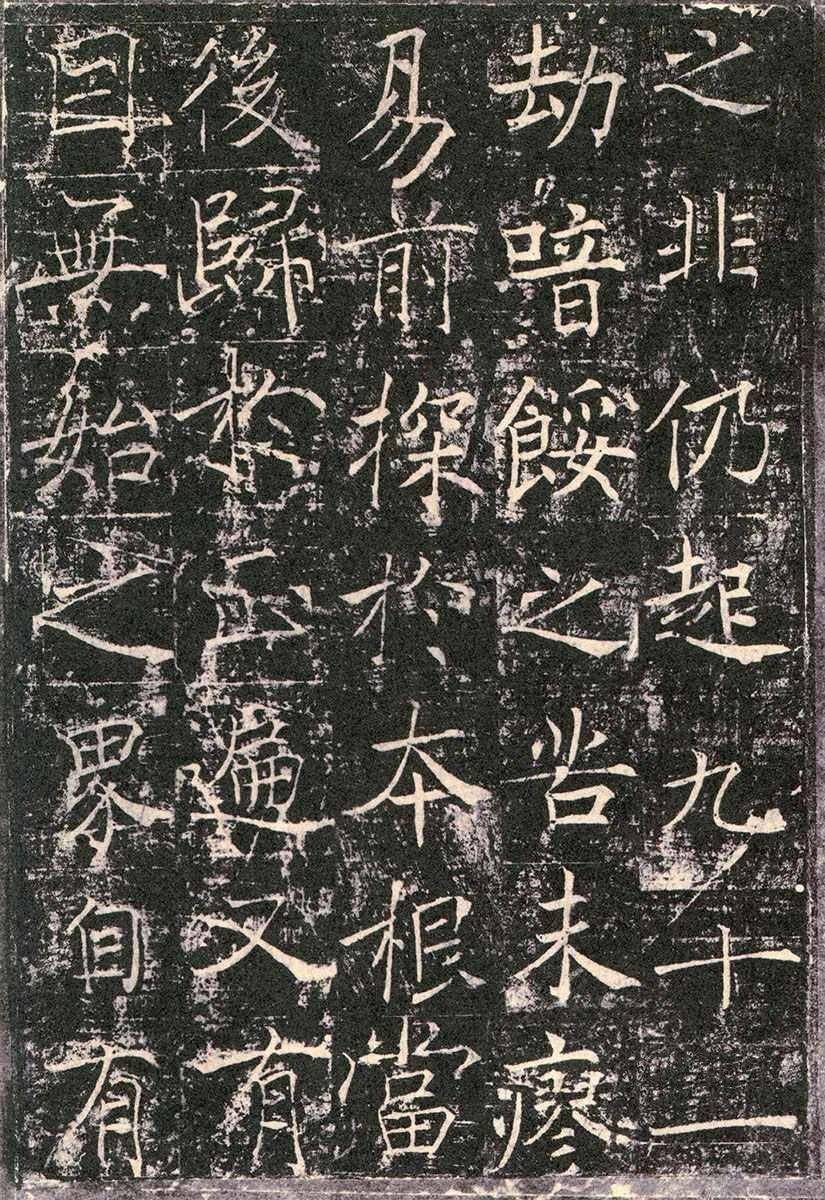 之非仍起九十一
劫喑餒之咎未瘳
易前探於本根當
後歸於正遍又有
因無始之界自有